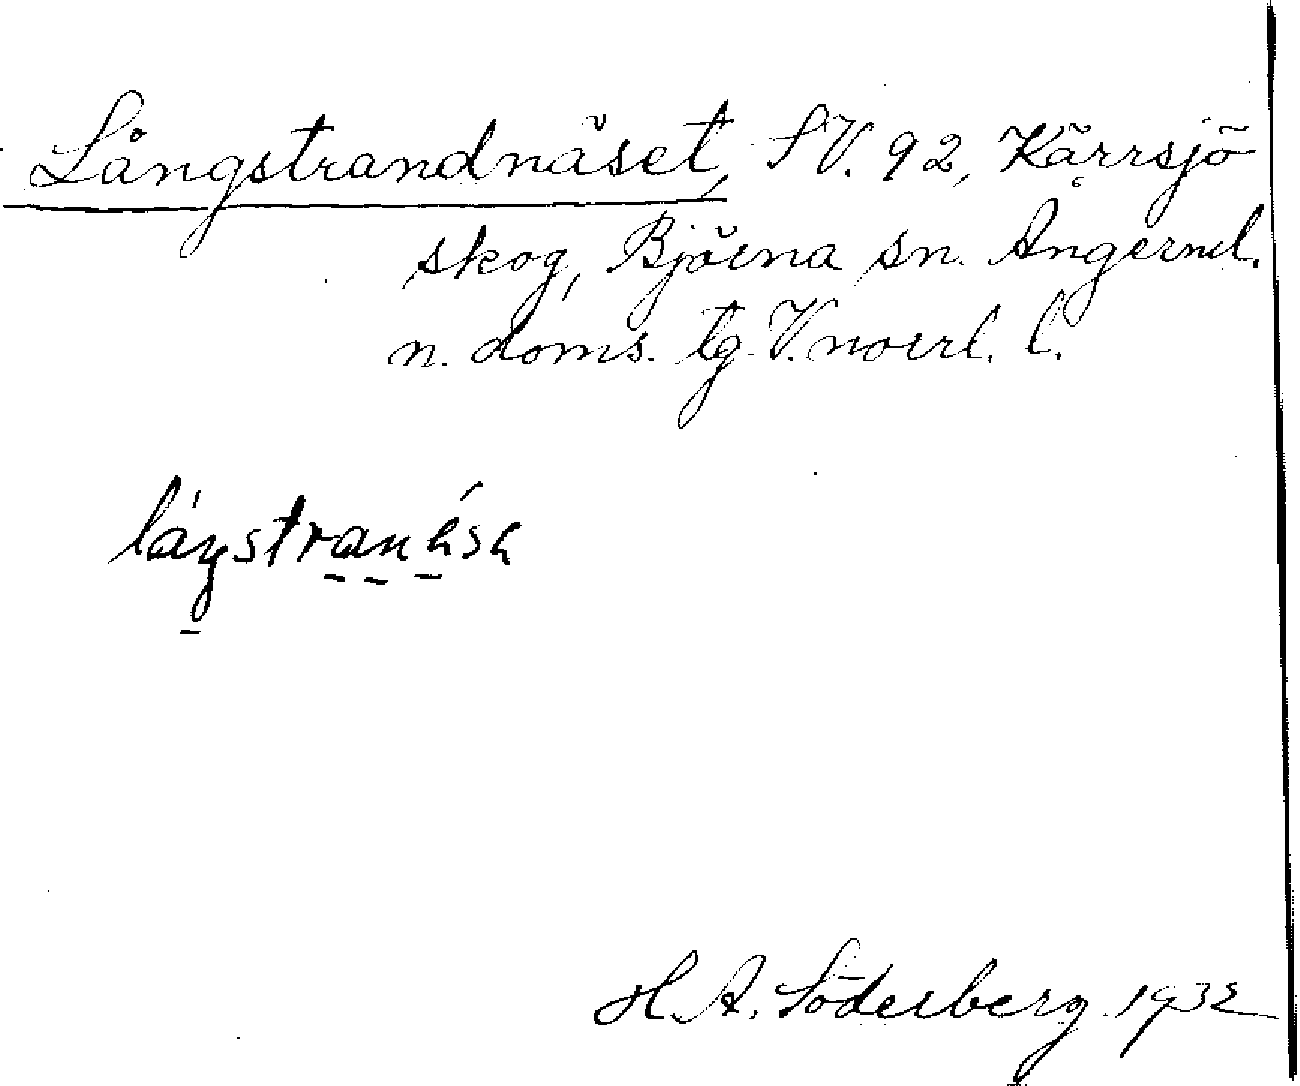 Långstrandnäset, SV. 92, Kärrsjö
skog, Björna sn. Ångerml.
n. doms. tg. V.norrl. l.
H. A. Söderberg 1932